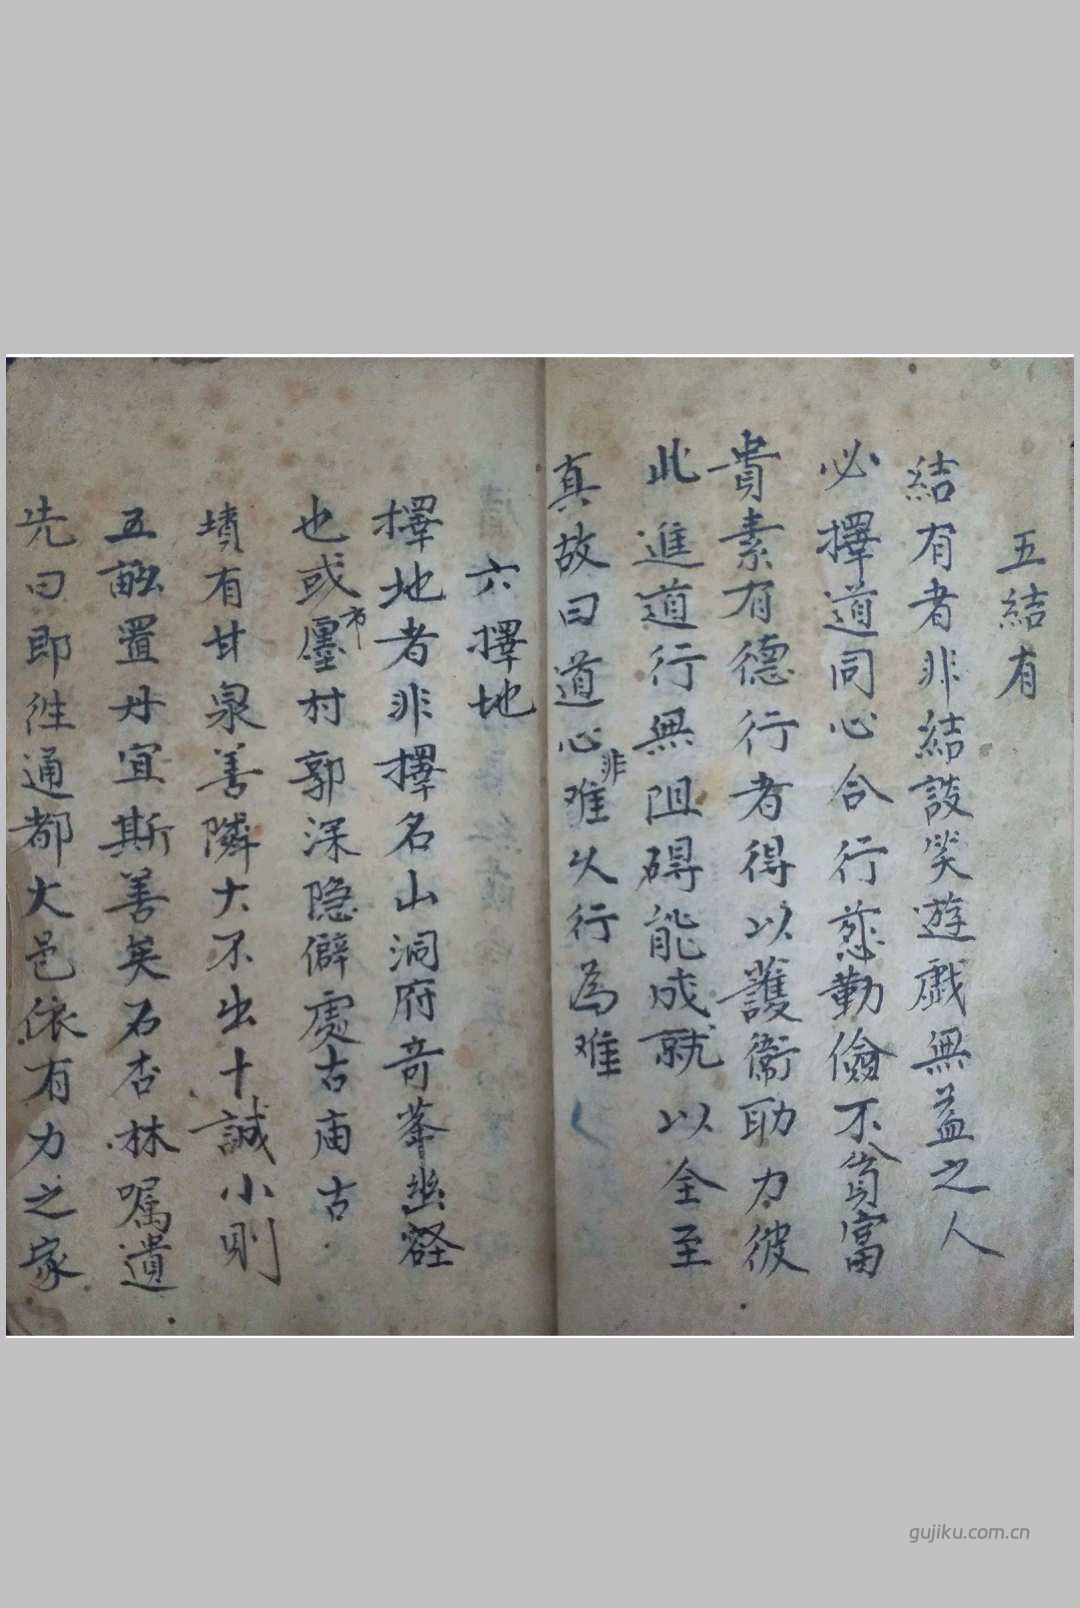 五結有
結有者非結談笑遊戲無益之人
必擇道同心合行慈勤儉不貪富
貴素有德行者得以護衛助力彼
此進道行無阻碍能成就以全至
真故曰道心非难以行為难
六擇地
擇地者非擇名山洞府竒峯幽壑
也或市廛村郭深隐僻處古庙古
墳有甘泉善隣大不出十誠小則
五置丹宜斯善矣石杏林嘱遺
先曰即往通都大邑依有力之家
gujiku.com.cn